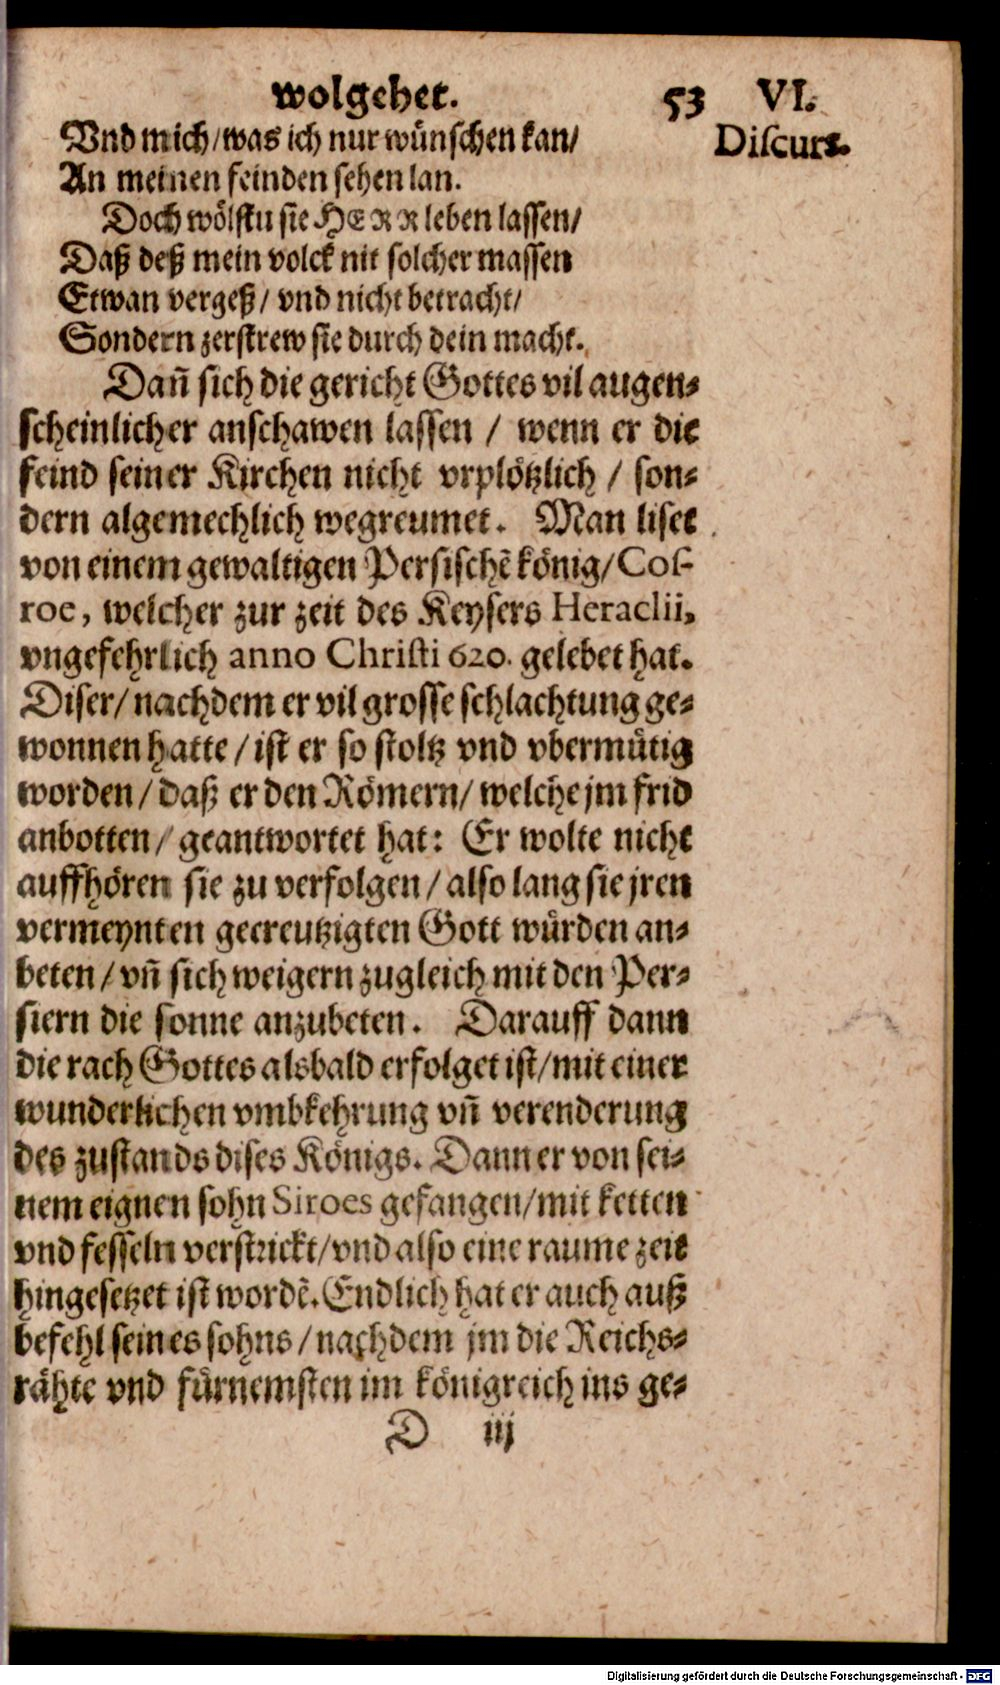 wolgehet. 53 VI.
Discurs.
Vnd mich/was ich nur wünschen kan/
An meinen feinden sehen lan.
Doch wölstu sie HERR leben lassen/
Daß deß mein volck nit solcher massen
Etwan vergeß/ vnd nicht betracht/
Sondern zerstrew sie durch dein macht.
Dañ sich die gericht Gottes vil augen-
scheinlicher anschawen lassen / wenn er die
feind seiner Kirchen nicht vrplötzlich / son-
dern algemechlich wegreumet. Man liset
von einem gewaltigen Persischẽ könig/ Cos-
roe, welcher zur zeit des Keysers Heraclii,
vngefehrlich anno Christi 620. gelebet hat.
Diser/ nachdem er vil grosse schlachtung ge-
wonnen hatte / ist er so stoltz vnd vbermütig
worden / daß er den Römern/ welche jm frid
anbotten / geantwortet hat: Er wolte nicht
auffhören sie zu verfolgen / also lang sie jren
vermeynten gecreutzigten Gott würden an-
beten / vñ sich weigern zugleich mit den Per-
siern die sonne anzubeten. Darauff dann
die rach Gottes alsbald erfolget ist/mit einer
wunderlichen vmbkehrung vñ verenderung
des zustands dises Königs. Dann er von sei-
nem eignen sohn Siroes gefangen/mit ketten
vnd fesseln verstrickt/vnd also eine raume zeit
hingesetzet ist wordẽ. Endlich hat er auch auß
befehl seines sohns / nachdem jm die Reichs-
rähte vnd fürnemsten im königreich ins ge-
D iij
Digitalisierung gefördert durch die Deutsche Forschungsgemeinschaft - DFG